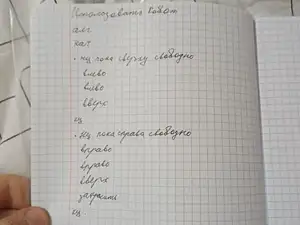 использование Робот
алг
нач
• нц пока сверху свободно
влево
влево
вверх
кц
• нц пока справа свободно
вправо
вправо
вверх
закрасить
кц